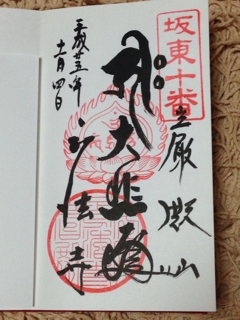 坂東十番
巌殿山
大悲
正法寺
平成廿五年
十一月四日